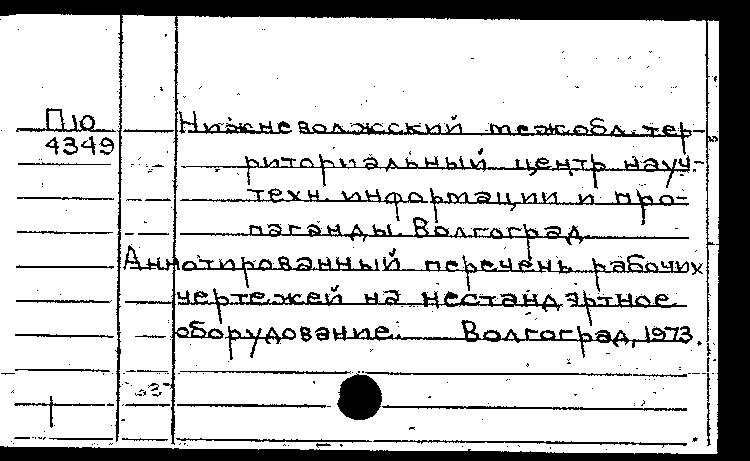 П10
4349
Нижневолжский межобл. тер-
риториальный центр науч.-
техн. информации и про-
паганды. Волгоград.
Аннотированный перечень рабочих
чертежей на нестандартное
оборудование. Волгоград, 1973.